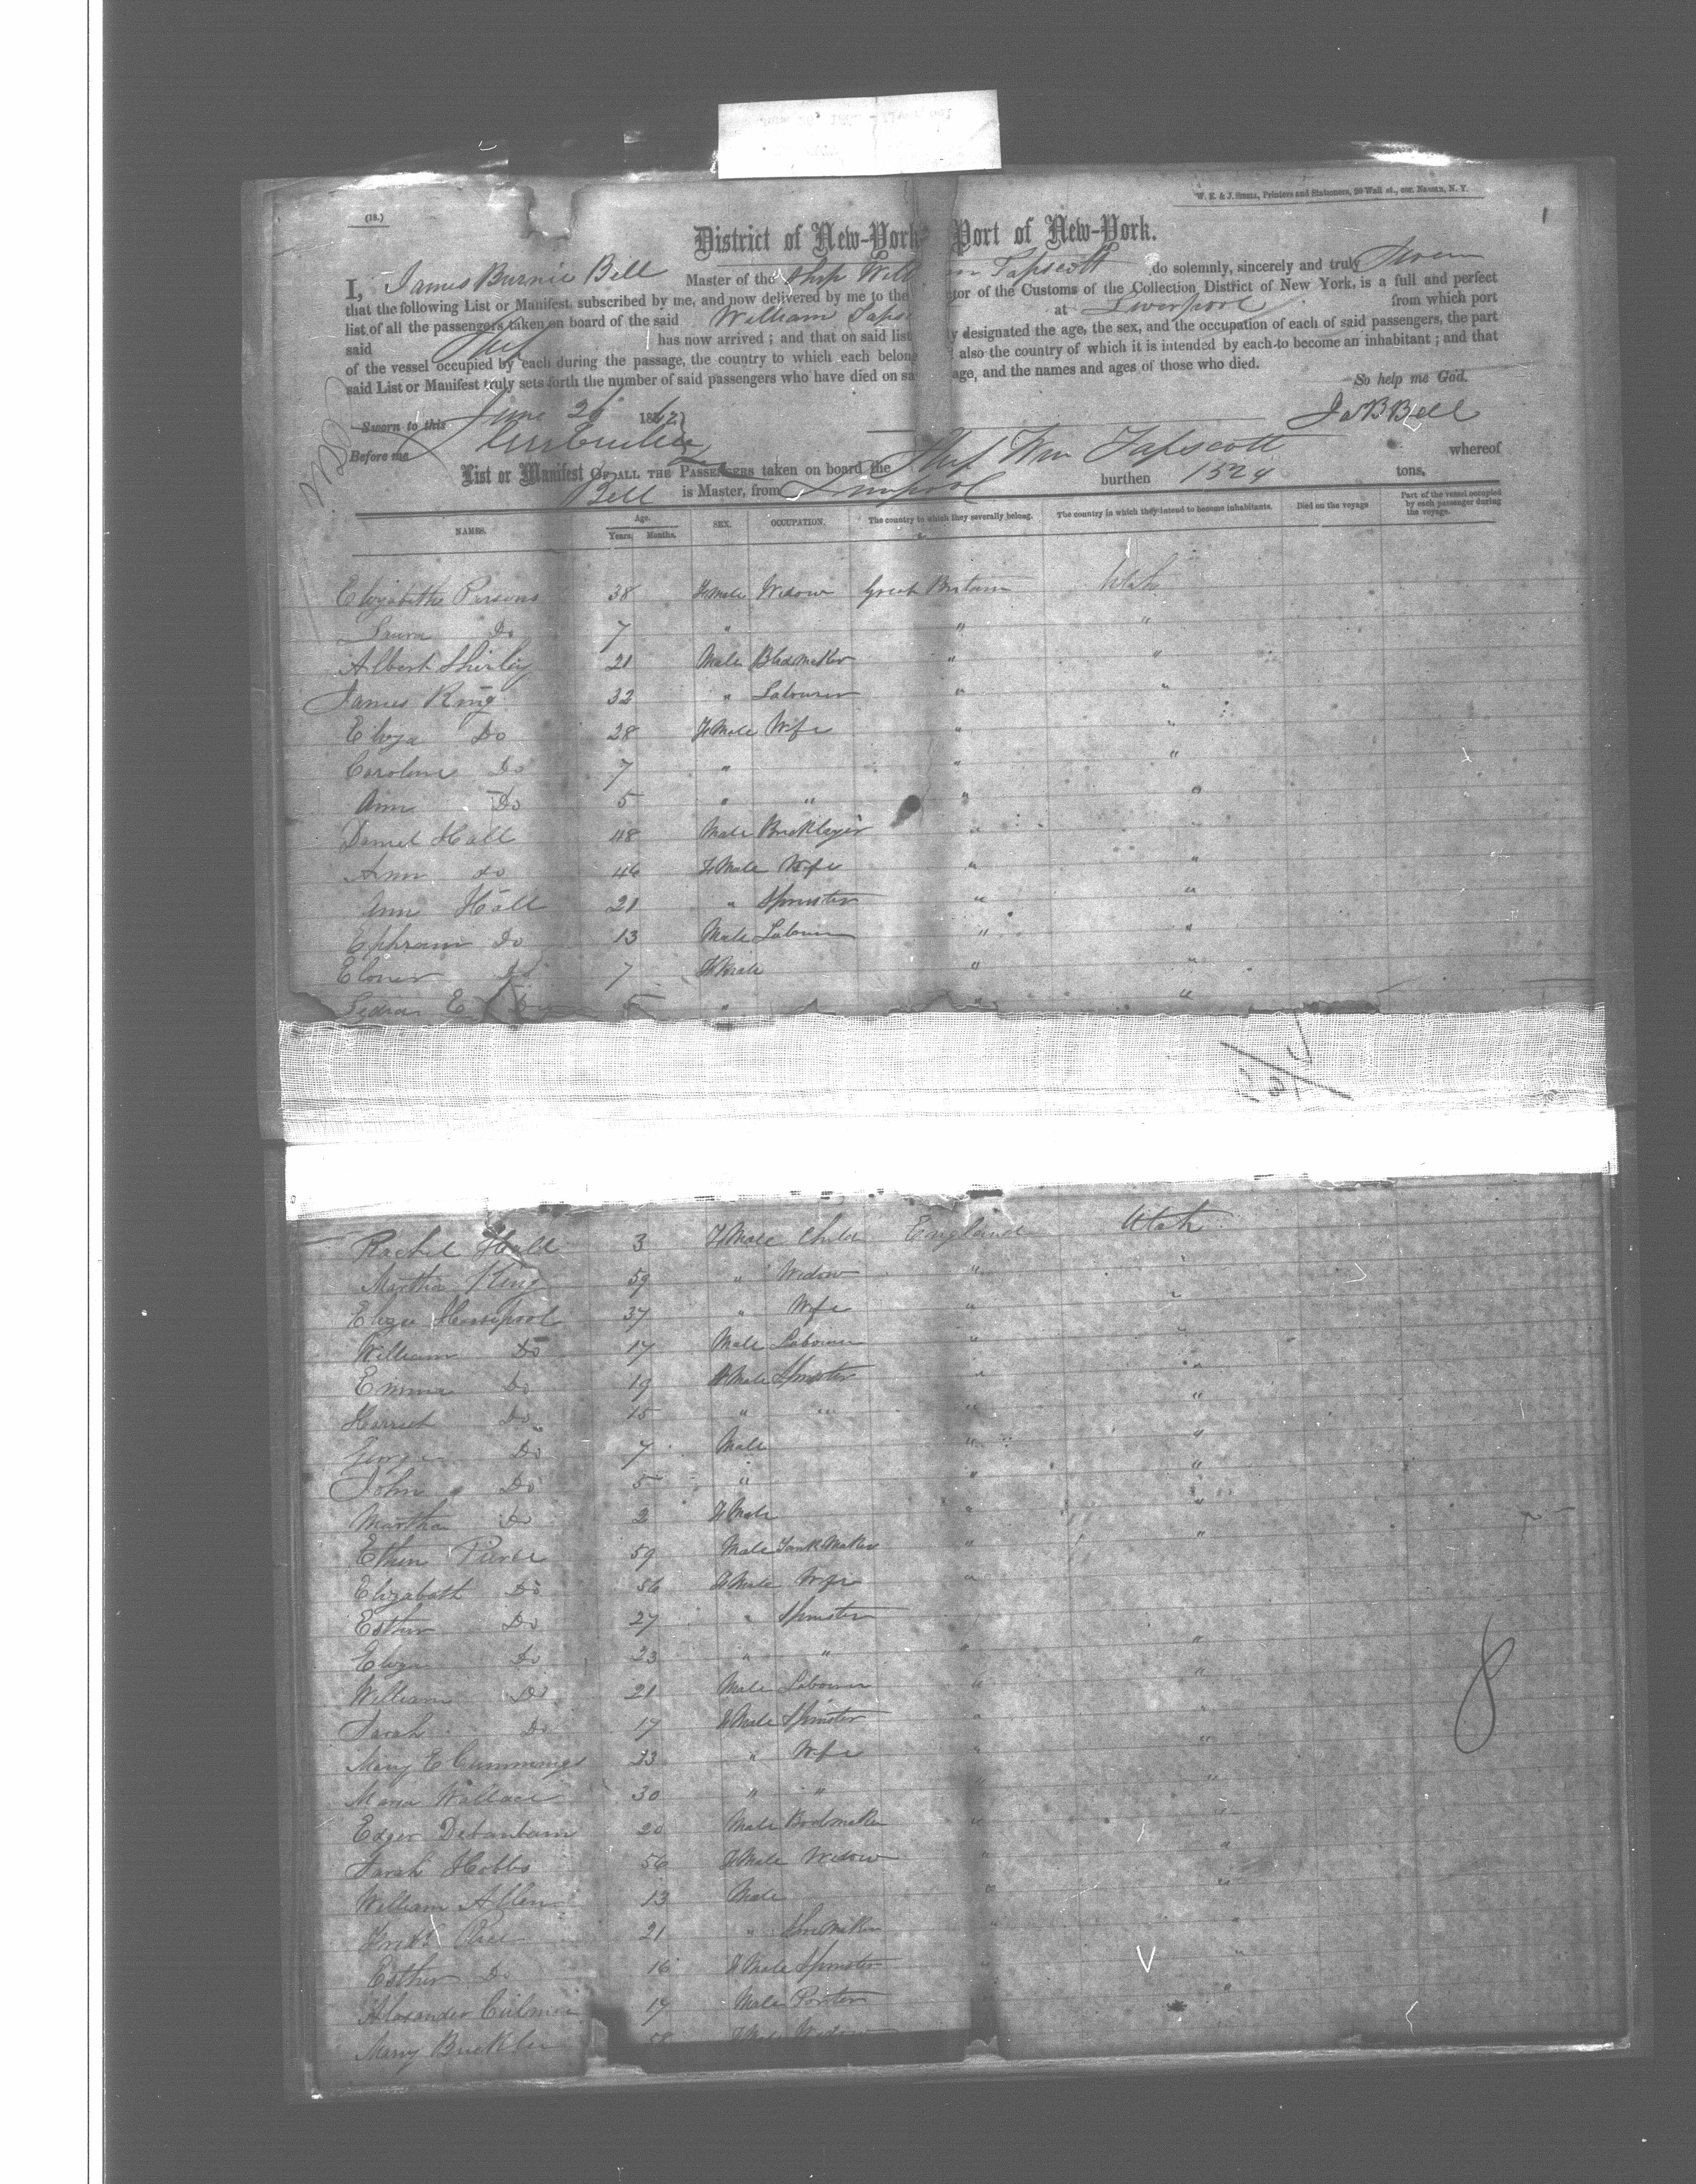 (18.)
W. E. & J. Sibell, Printers and Stationers, 96 Wall st., cor. Nassau, N. Y.
1
District of New-York Port of New-York.
I, James Burnie Bell Master of the Ship Will m Tapscott do solemnly, sincerely and truly Swear
that the following List or Manifest, subscribed by me, and now delivered by me to the ctor of the Customs of the Collection District of New York, is a full and perfect
list of all the passengers taken on board of the said William Tapsc at Liverpool from which port
said Ship has now arrived; and that on said list ly designated the age, the sex, and the occupation of each of said passengers, the part
of the vessel occupied by each during the passage, the country to which each belong also the country of which it is intended by each to become an inhabitant; and that
said List or Manifest truly sets forth the number of said passengers who have died on sa age, and the names and ages of those who died.
So help me God.
Sworn to this June 26 1862
Jas B Bell
Before me
List or Manifest OF ALL THE PASSENGERS taken on board the Ship Wm Tapscott whereof
Bell is Master, from Liverpool burthen 1524 tons,
NAMES. Age. Years. Months. SEX. OCCUPATION. The country to which they severally belong. The country in which they intend to become inhabitants. Died on the voyage Part of the vessel occupied by each passenger during the voyage.
Elizabeth Parsons 38 FeMale Widow Great Britain Utah
Laura Do 7 " " "
Albert Shirley 21 Male " "
James King 32 " Labourer " "
Eliza Do 28 FeMale Wife " "
Caroline Do 7 " " "
Ann Do 5 " " " "
Daniel Hall 48 Male Bricklayer " "
Ann do 46 FeMale Wife " "
Ann Hall 21 " Spinster " "
Ephraim Do 13 Male Labourer " "
Elonor Do 7 FeMale " "
E 5 " " "
Rachel Hall 3 FeMale Child England Utah
Martha King 59 " Widow " "
Eliza Horsepool 37 " Wife " "
William Do 17 Male Labourer " "
Emma Do 19 FeMale Spinster " "
Harriet Do 15 " " " "
George Do 7 Male " "
John Do 5 " " "
Martha Do 2 FeMale " "
Ethen Pierce 59 Male " "
Elizabeth Do 56 FeMale Wife "
Esther Do 27 " Spinster
Eliza Do 23 " " " "
William Do 21 Male Labourer " "
Sarah Do 17 FeMale Spinster " "
Mary E Cummings 23 " Wife " "
Maria Wallace 30 " " " "
Edger Debanham 20 Male Bootmaker " "
Sarah Hobbs 56 FeMale Widow " "
William Allen 13 Male " "
21 " Shoe Maker " "
Esther Do 16 FeMale Spinster " "
Alexander 17 Male Porter "
Mary Buckler 58 FeMale Widow
8